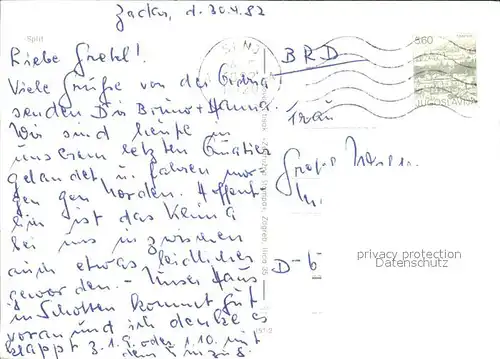 d. 30.4.82
Split
Liebe Gretel!
Viele Grüße von der Adria
senden Dir Bruno + Hanna.
Wir sind heute in
unserem letzten Quartier
gelandet, u. fahren mor
gen gen Norden. Hoffent
lich ist das Klima
bei uns inzwischen
auch etwas leidlicher
geworden. - Unser Haus
in Schotten kommt gut
voran und ich denke es
klappt z. 1.9. oder 1.10. mit
dem Einzug.
SINJ
BRD
8,60
JUGOSLAVIJA
Frau
D-6
privacy protection
Datenschutz